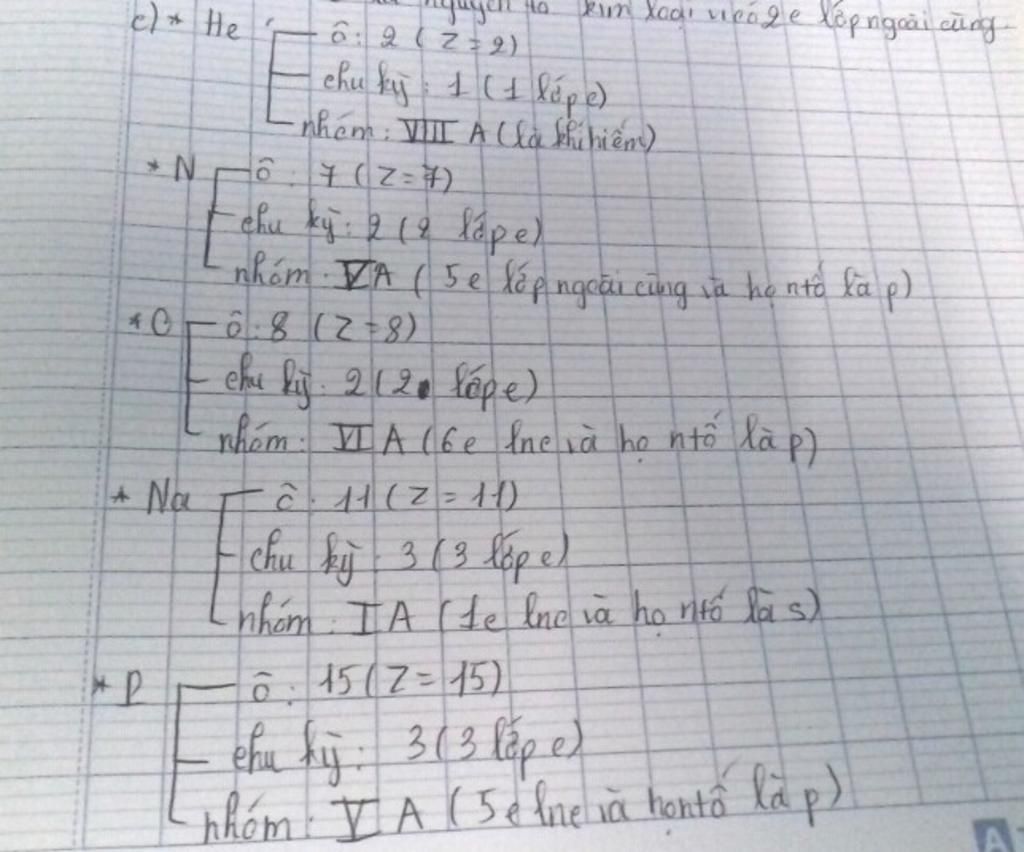 nguyên tố kim loại vì có 2e lớp ngoài cùng
c) * He ô: 2 (Z=2)
chu kỳ: 1 (1 lớp e)
nhóm: VIII A (là khí hiếm)
* N ô: 7 (Z=7)
chu kỳ: 2 (2 lớp e)
nhóm: VA (5e lớp ngoài cùng và họ ntố là p)
* O ô: 8 (Z=8)
chu kỳ: 2 (2 lớp e)
nhóm: VI A (6e lnc và họ ntố là p)
* Na ô: 11 (Z=11)
chu kỳ: 3 (3 lớp e)
nhóm: I A (1e lnc và họ ntố là s)
* P ô: 15 (Z=15)
chu kỳ: 3 (3 lớp e)
nhóm: V A (5e lnc và họ ntố là p)
A